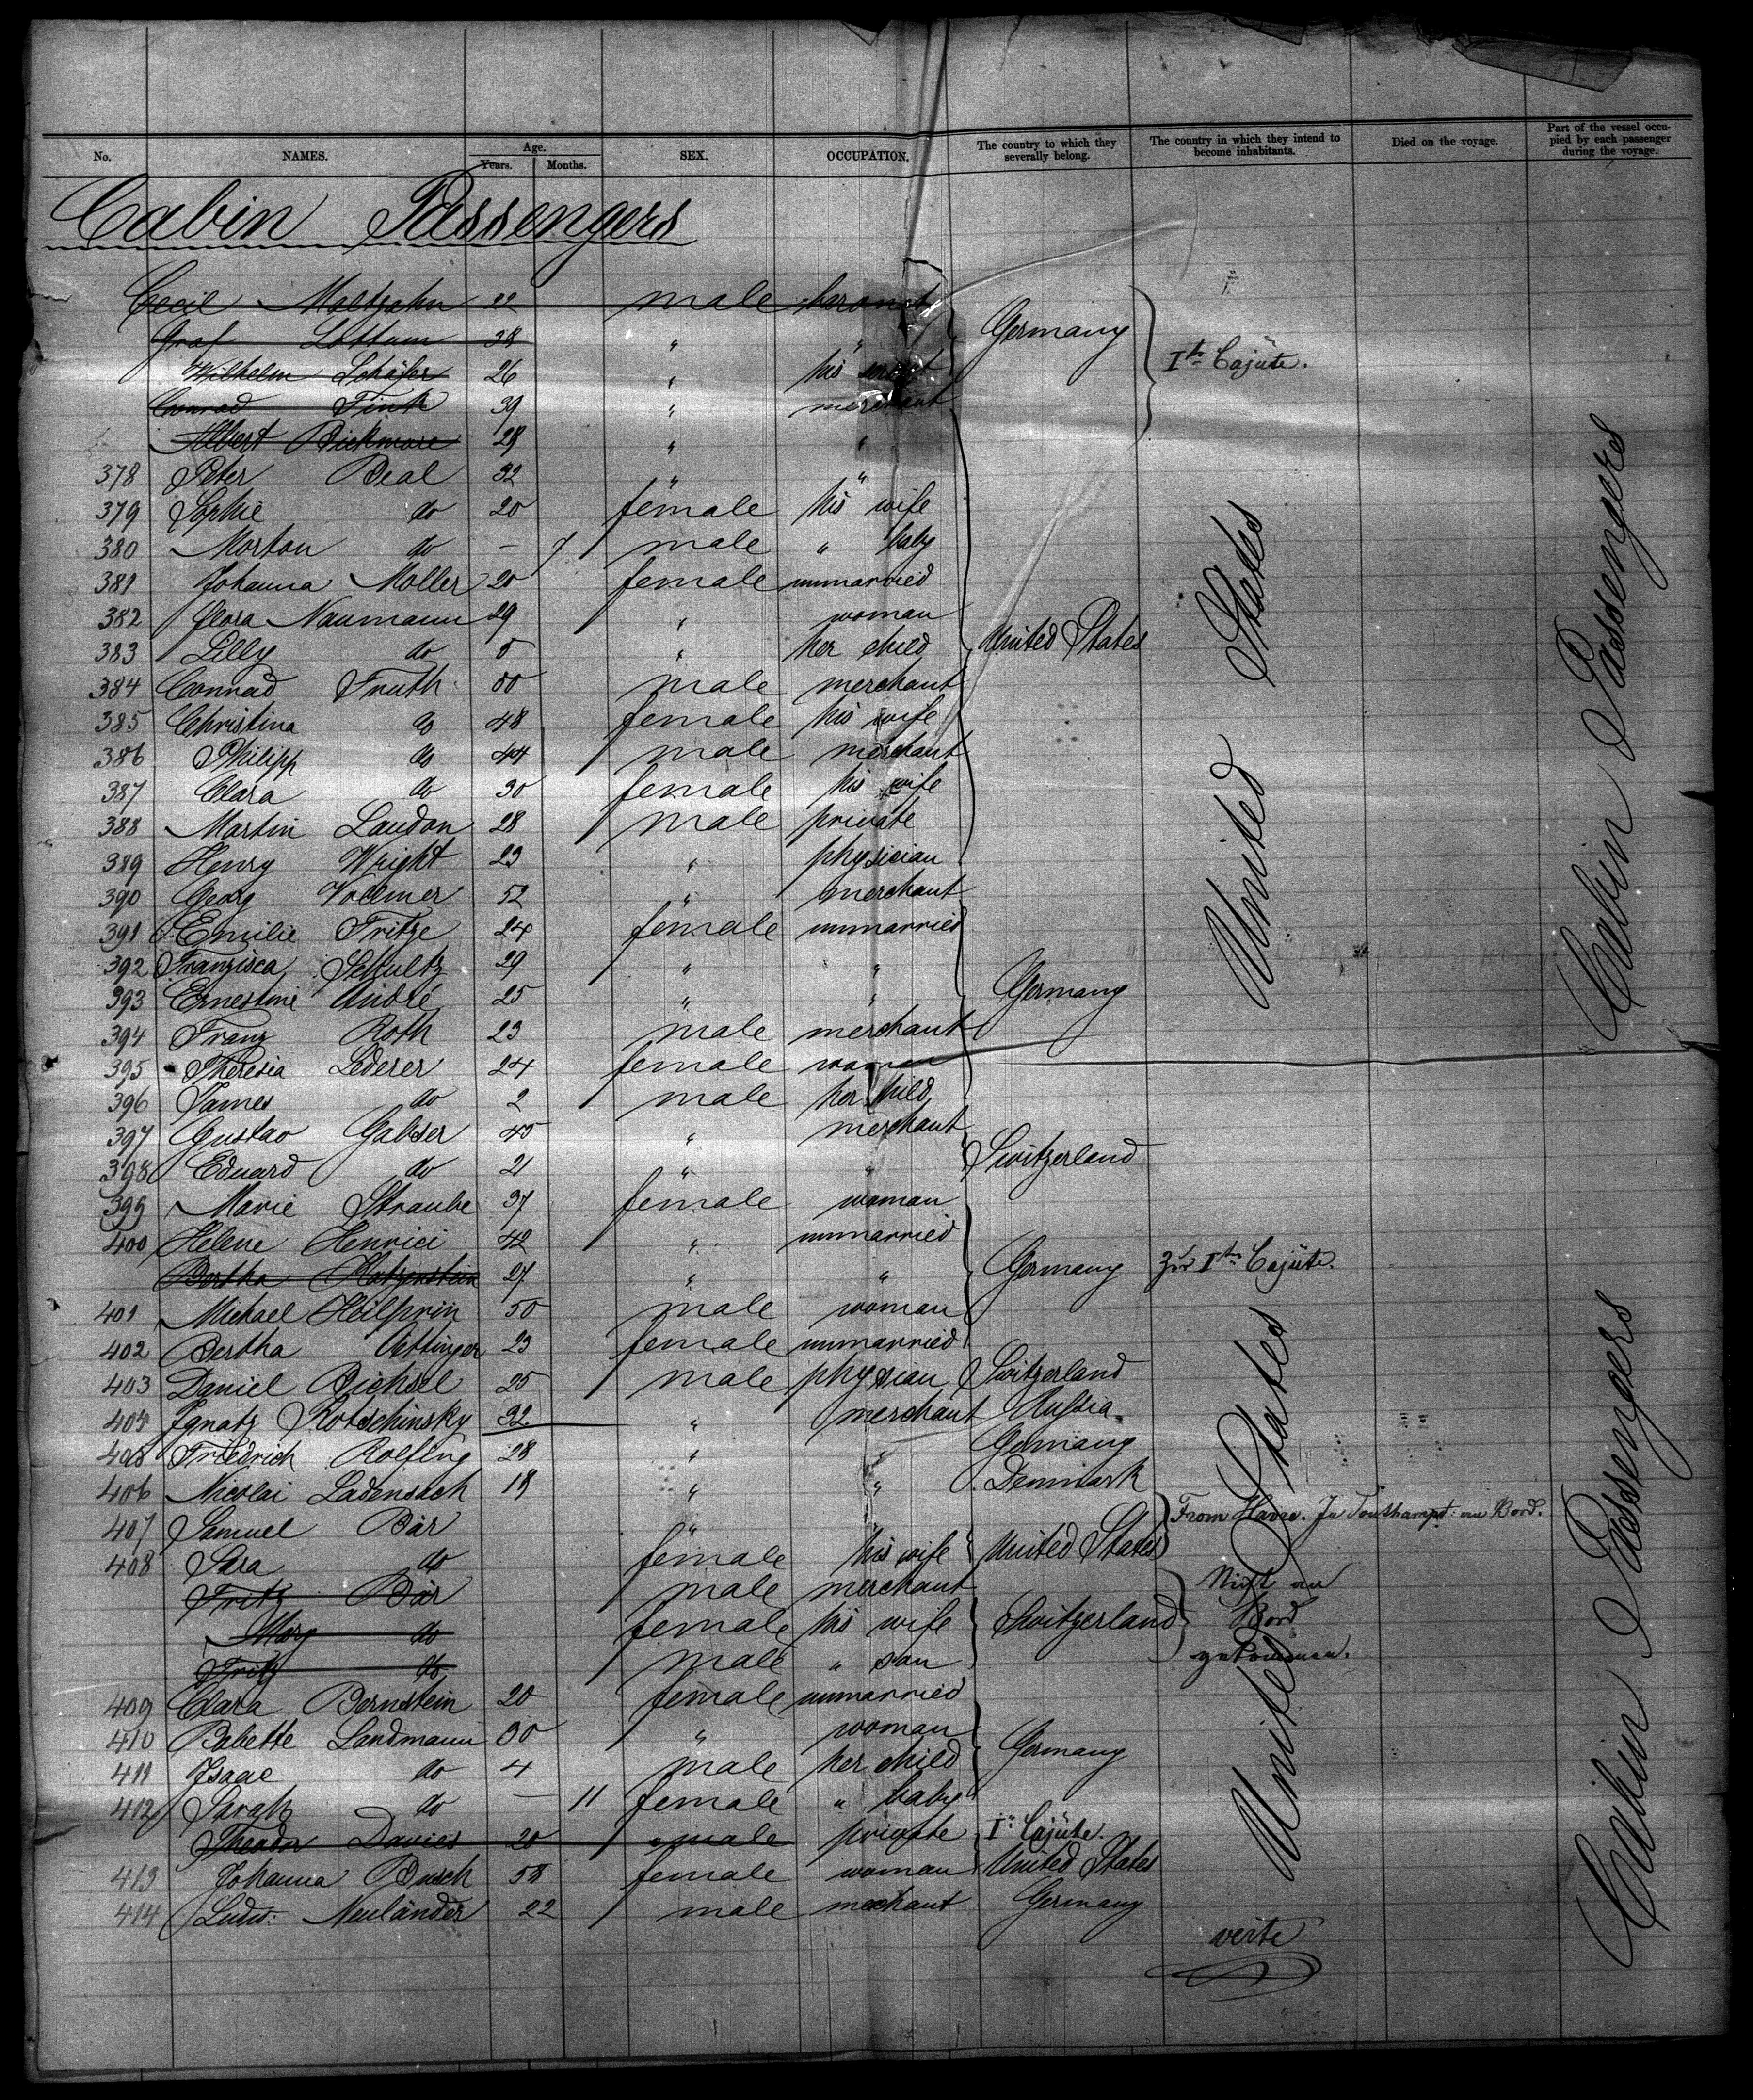 No. NAMES. Age. Years. Months. SEX. OCCUPATION. The country to which they severally belong. The country in which they intend to become inhabitants. Died on the voyage. Part of the vessel occupied by each passenger during the voyage.
Cabin Passengers
Cecil Maltzahn 22 male
Graf Lottum 38 " " Germany
Wilhelm Schäfer 26 " his Ite Cajüte.
Conrad Fink 39 " merchant
Albert Bickmore 28 " "
378 Peter Beal 32 " "
379 Sophie do 20 female his wife
380 Morton do — 7 male " baby
381 Johanna Moller 20 female unmarried
382 Clara Naumann 29 " woman
383 Lilly do 5 " her child United States
384 Conrad Fruth male merchant
385 Christina do 48 female his wife
386 Philipp do 44 male merchant
387 Clara do 30 female his wife
388 Martin Laudon 28 male private
389 Henry Wright 23 " physician
390 Georg Vollmer 52 " merchant
391 Emilie Fritze 24 female unmarried
392 Franzisca Schultz 29 " "
393 Ernestine André 25 " " Germany
394 Franz Roth 23 male merchant
395 Theresia Lederer 24 female woman
396 James do 2 male her child
397 Gustav 45 " merchant
398 Eduard do 21 " " Switzerland
399 Marie Straube 37 female woman
400 Helene Henrici 42 " unmarried
Bertha Katzenstein 27 " " Germany zur Iten Cajüte.
401 Michael Heilprin 50 male woman
402 Bertha Oettinger 23 female unmarried
403 Daniel Bichsel 25 male physian Switzerland
404 Ignatz Rotschinsky 32 " merchant Russia
405 Friedrich Rolfing 28 " " Germany
406 Nicolai Ladensach 18 " " Denmark
407 Samuel Bär " From Havre. In Southampt: an Bord.
408 Sara do female his wife United States
Fritz Bär male merchant Nicht an
Mary do female his wife Switzerland Bord
Fritz do male " son gekommen.
409 Clara Bernstein 20 female unmarried
410 Babette Landmann 30 " woman Germany
411 Isaac do 4 male her child
412 Sarah do — 11 female " baby
Theodor Davies 20 male private I: Cajüte.
413 Johanna Busch 58 female woman United States
414 Ludw: Neuländer 22 male merchant Germany
verte
United States
United States
Cabin Passengers
Cabin Passengers